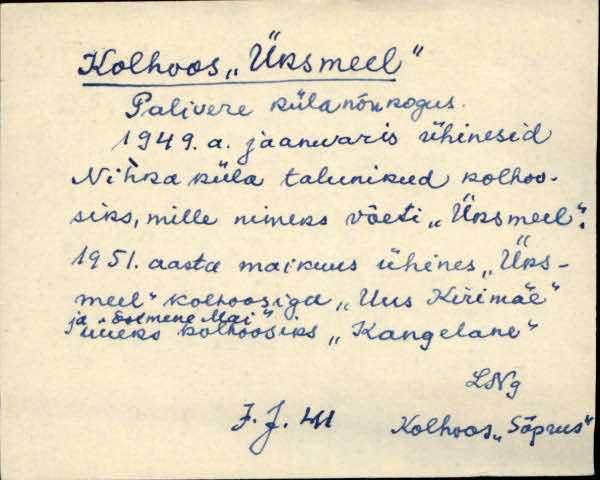 Kolhoos „Üksmeel"
Palivere külanõukogus.
1949.a. jaanuaris ühinesid
Nihka küla talunikud kolhoo-
siks, mille nimeks võeti „Üksmeel".
1951. aasta maikuus ühines „Üks-
meel" kolhoosiga „Uus Kirimäe"
ja „Esimene Mai"
uueks kolhoosiks „Kangelane"
LNg
J.J. 411
Kolhoos „Sõprus"